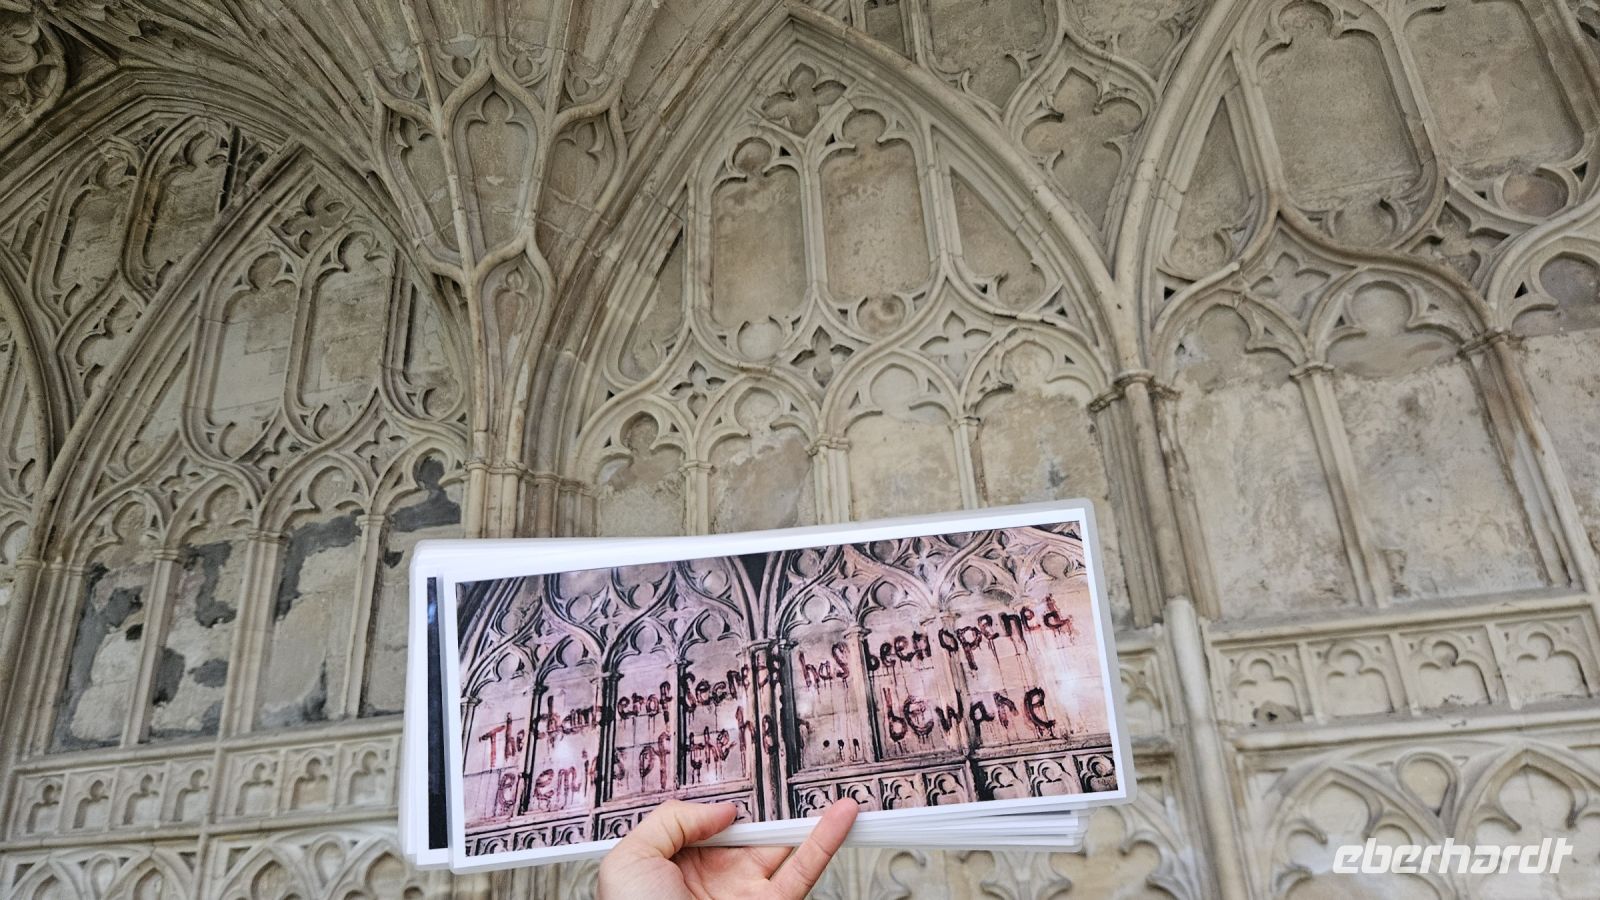 The chamber of Secrets has been opened
enemies of the heir ... beware
eberhardt